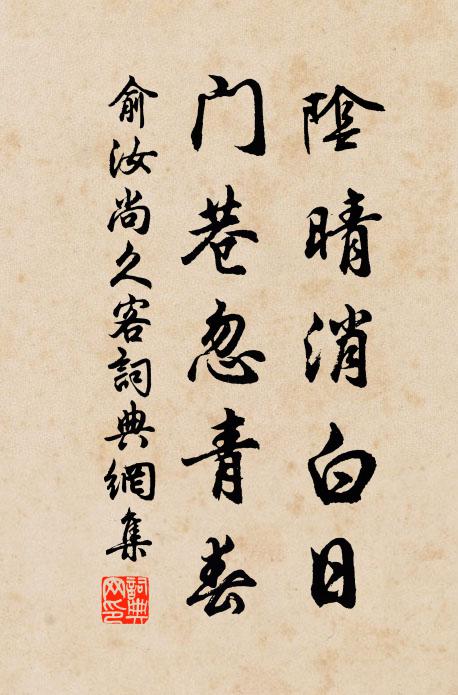 陰晴消白日
門巷忽青春
俞汝尚久客詞典網集
詞典网印